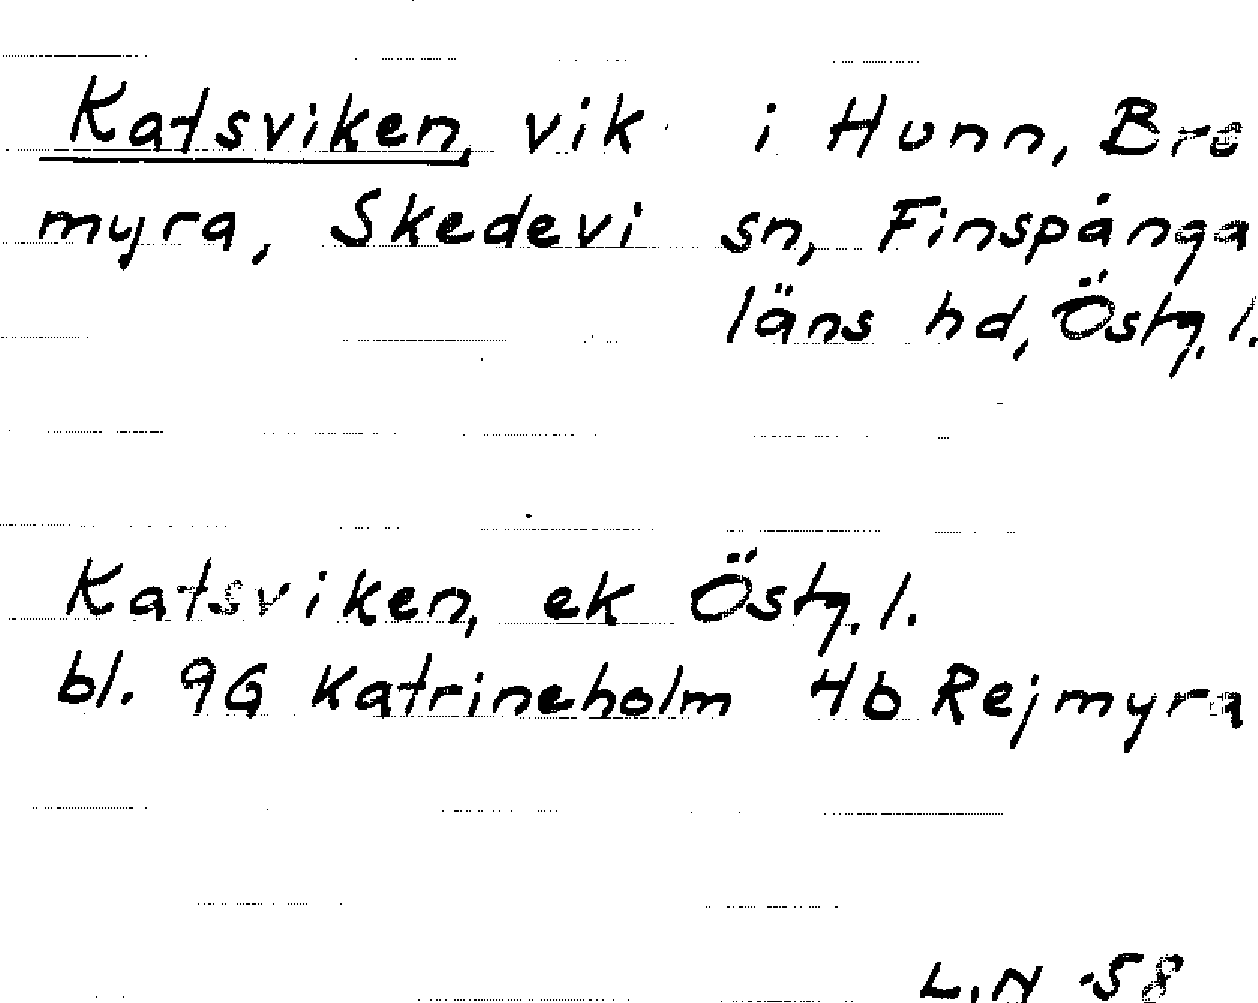 Katsviken, vik i Hunn, Bre
myra, Skedevi sn, Finspånga
läns hd, Östg. l.
Katsviken, ek Östg. l.
bl. 9G Katrineholm 4b Rejmyra
L.N -58